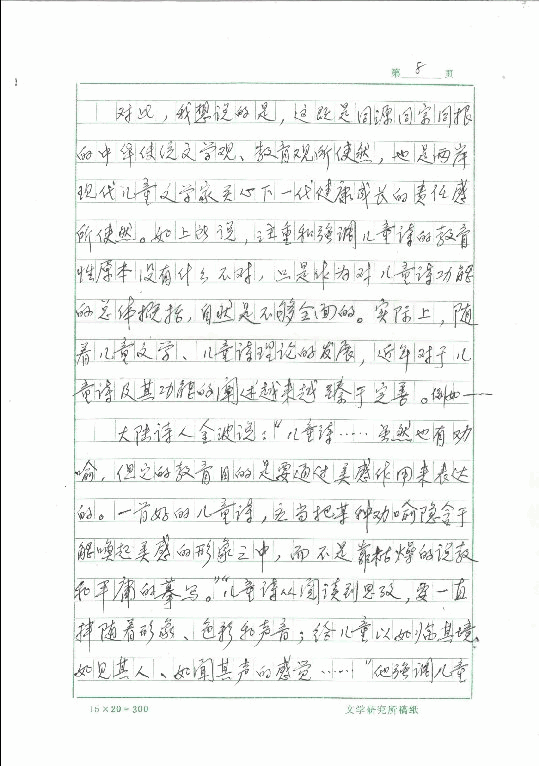 第 8 页
对此，我想说的是，这既是同源同宗同根
的中华传统文学观、教育观所使然，也是两岸
现代儿童文学家关心下一代健康成长的责任感
所使然。如上所说，注重和强调儿童诗的教育
性原本没有什么不对，只是作为对儿童诗功能
的总体概括，自然是不够全面的。实际上，随
着儿童文学、儿童诗理论的发展，近年对于儿
童诗及其功能的阐述越来越臻于完善。例如——
大陆诗人金波说：“儿童诗……虽然也有劝
喻，但它的教育目的是要通过美感作用来表达
的。一首好的儿童诗，应当把某种劝喻隐含于
能唤起美感的形象之中，而不是靠枯燥的说教
和平庸的摹写。”“儿童诗从阅读到思考，要一直
伴随着形象、色彩和声音；给儿童以如临其境、
如见其人、如闻其声的感觉……”他强调儿童
15×20=300
文学研究所稿纸